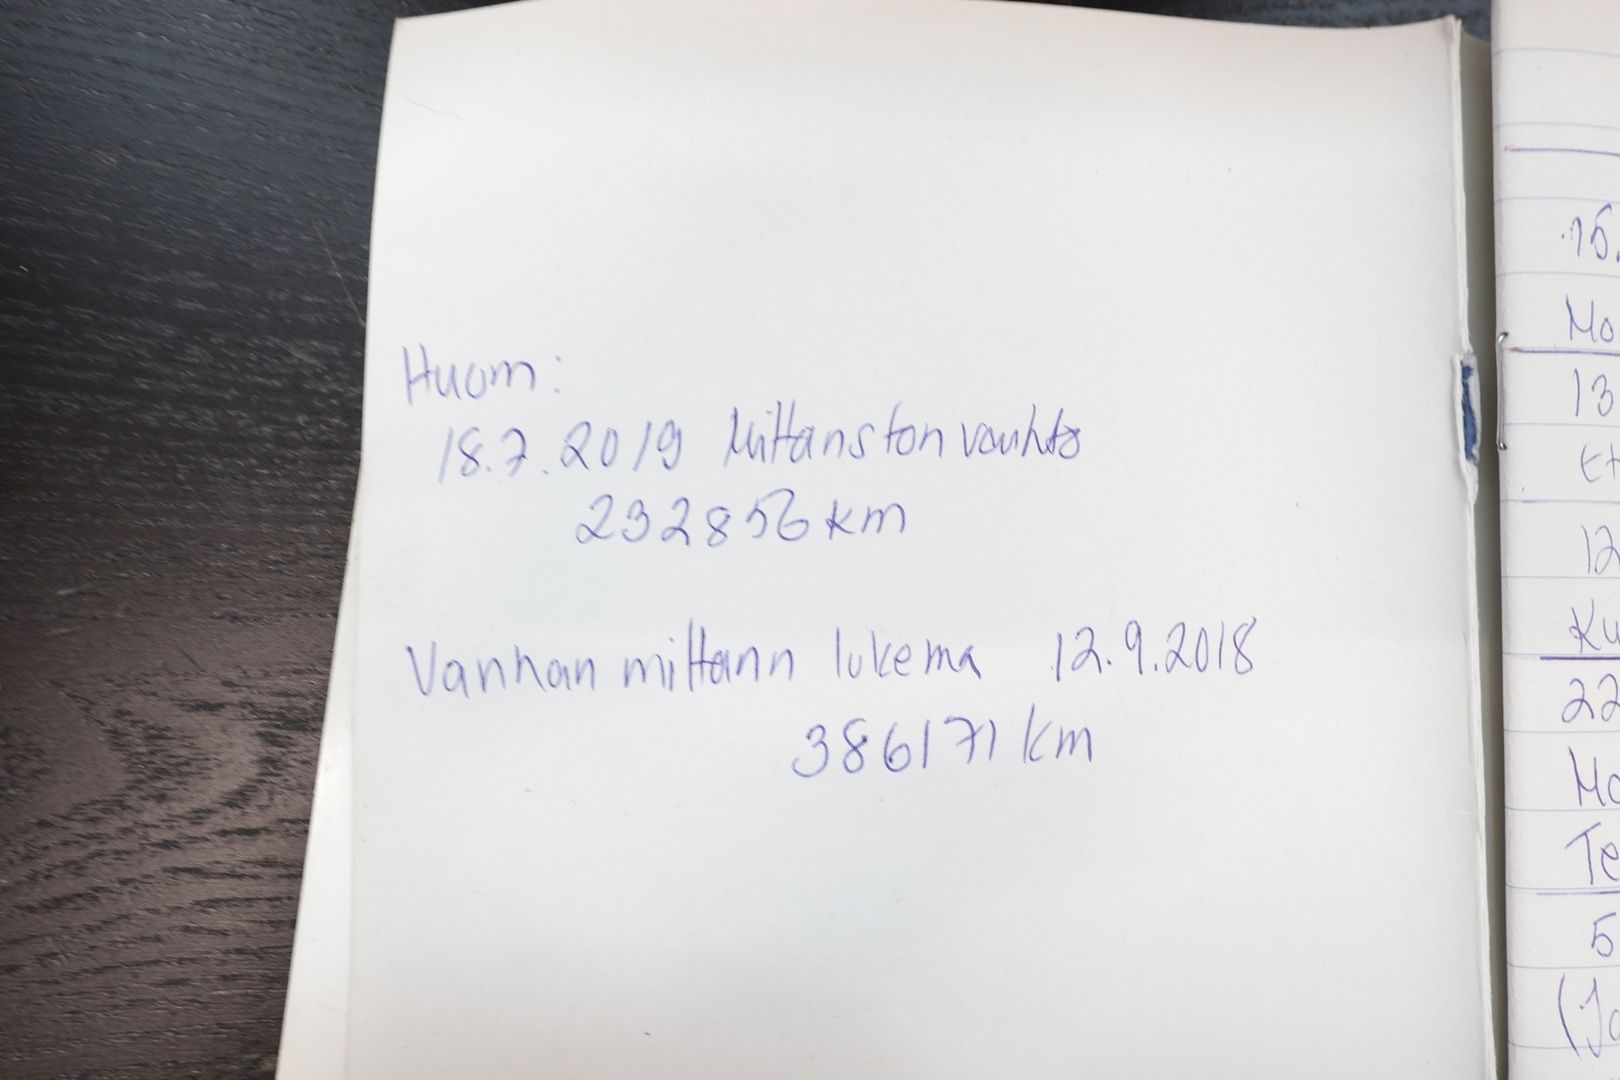 Huom:
18.7.2019 Mittariston vaihto
232856 km
Vanhan mittarin lukema 12.9.2018
386171 km
15.
Mo
13
Et
12
Ku
22
Mo
Te
5
(Ja